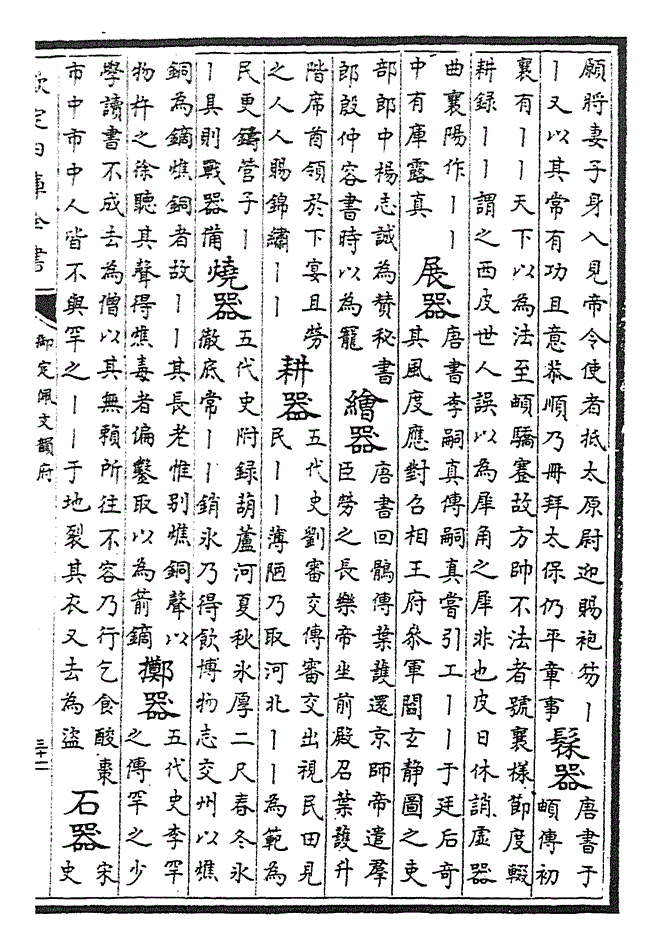 願將妻子身入見帝令使者抵太原尉迎賜袍笏丨
丨又以其常有功且意恭順乃冊拜太保仍平章事
髹器
唐書于
頔傳初
襄有丨丨天下以為法至頔驕蹇故方帥不法者號襄樣節度輟
耕録丨丨謂之西皮世人誤以為犀角之犀非也皮日休誚虛器
曲襄陽作丨丨
中有庫露真
展器
唐書李嗣真傳嗣真嘗引工丨丨于廷后奇
其風度應對召相王府叅軍閻玄静圖之吏
部郎中楊志誠為赞秘書
郎殷仲容書時以為寵
繪器
唐書回鶻傳葉護還京師帝遣羣
臣勞之長樂帝坐前殿召葉護升
階席酋領於下宴且勞
之人人賜錦繡丨丨
耕器
五代史劉審交傳審交出視民田見
民丨丨薄陋乃取河北丨丨為範為
民更鑄管子丨
丨具則戰器備
燒器
五代史附録葫蘆河夏秋氷厚二尺春冬氷
徹底常丨丨銷氷乃得飲博物志交州以燋
銅為鏑燋銅者故丨丨其長老惟别燋銅聲以
物杵之徐聽其聲得燋毒者偏鑿取以為箭鏑
擲器
五代史李罕
之傳罕之少
學讀書不成去為僧以其無賴所往不容乃行乞食酸棗
市中市中人皆不與罕之丨丨于地裂其衣又去為盜
石器
宋
史
欽定四庫全書
御定佩文韻府
三十二